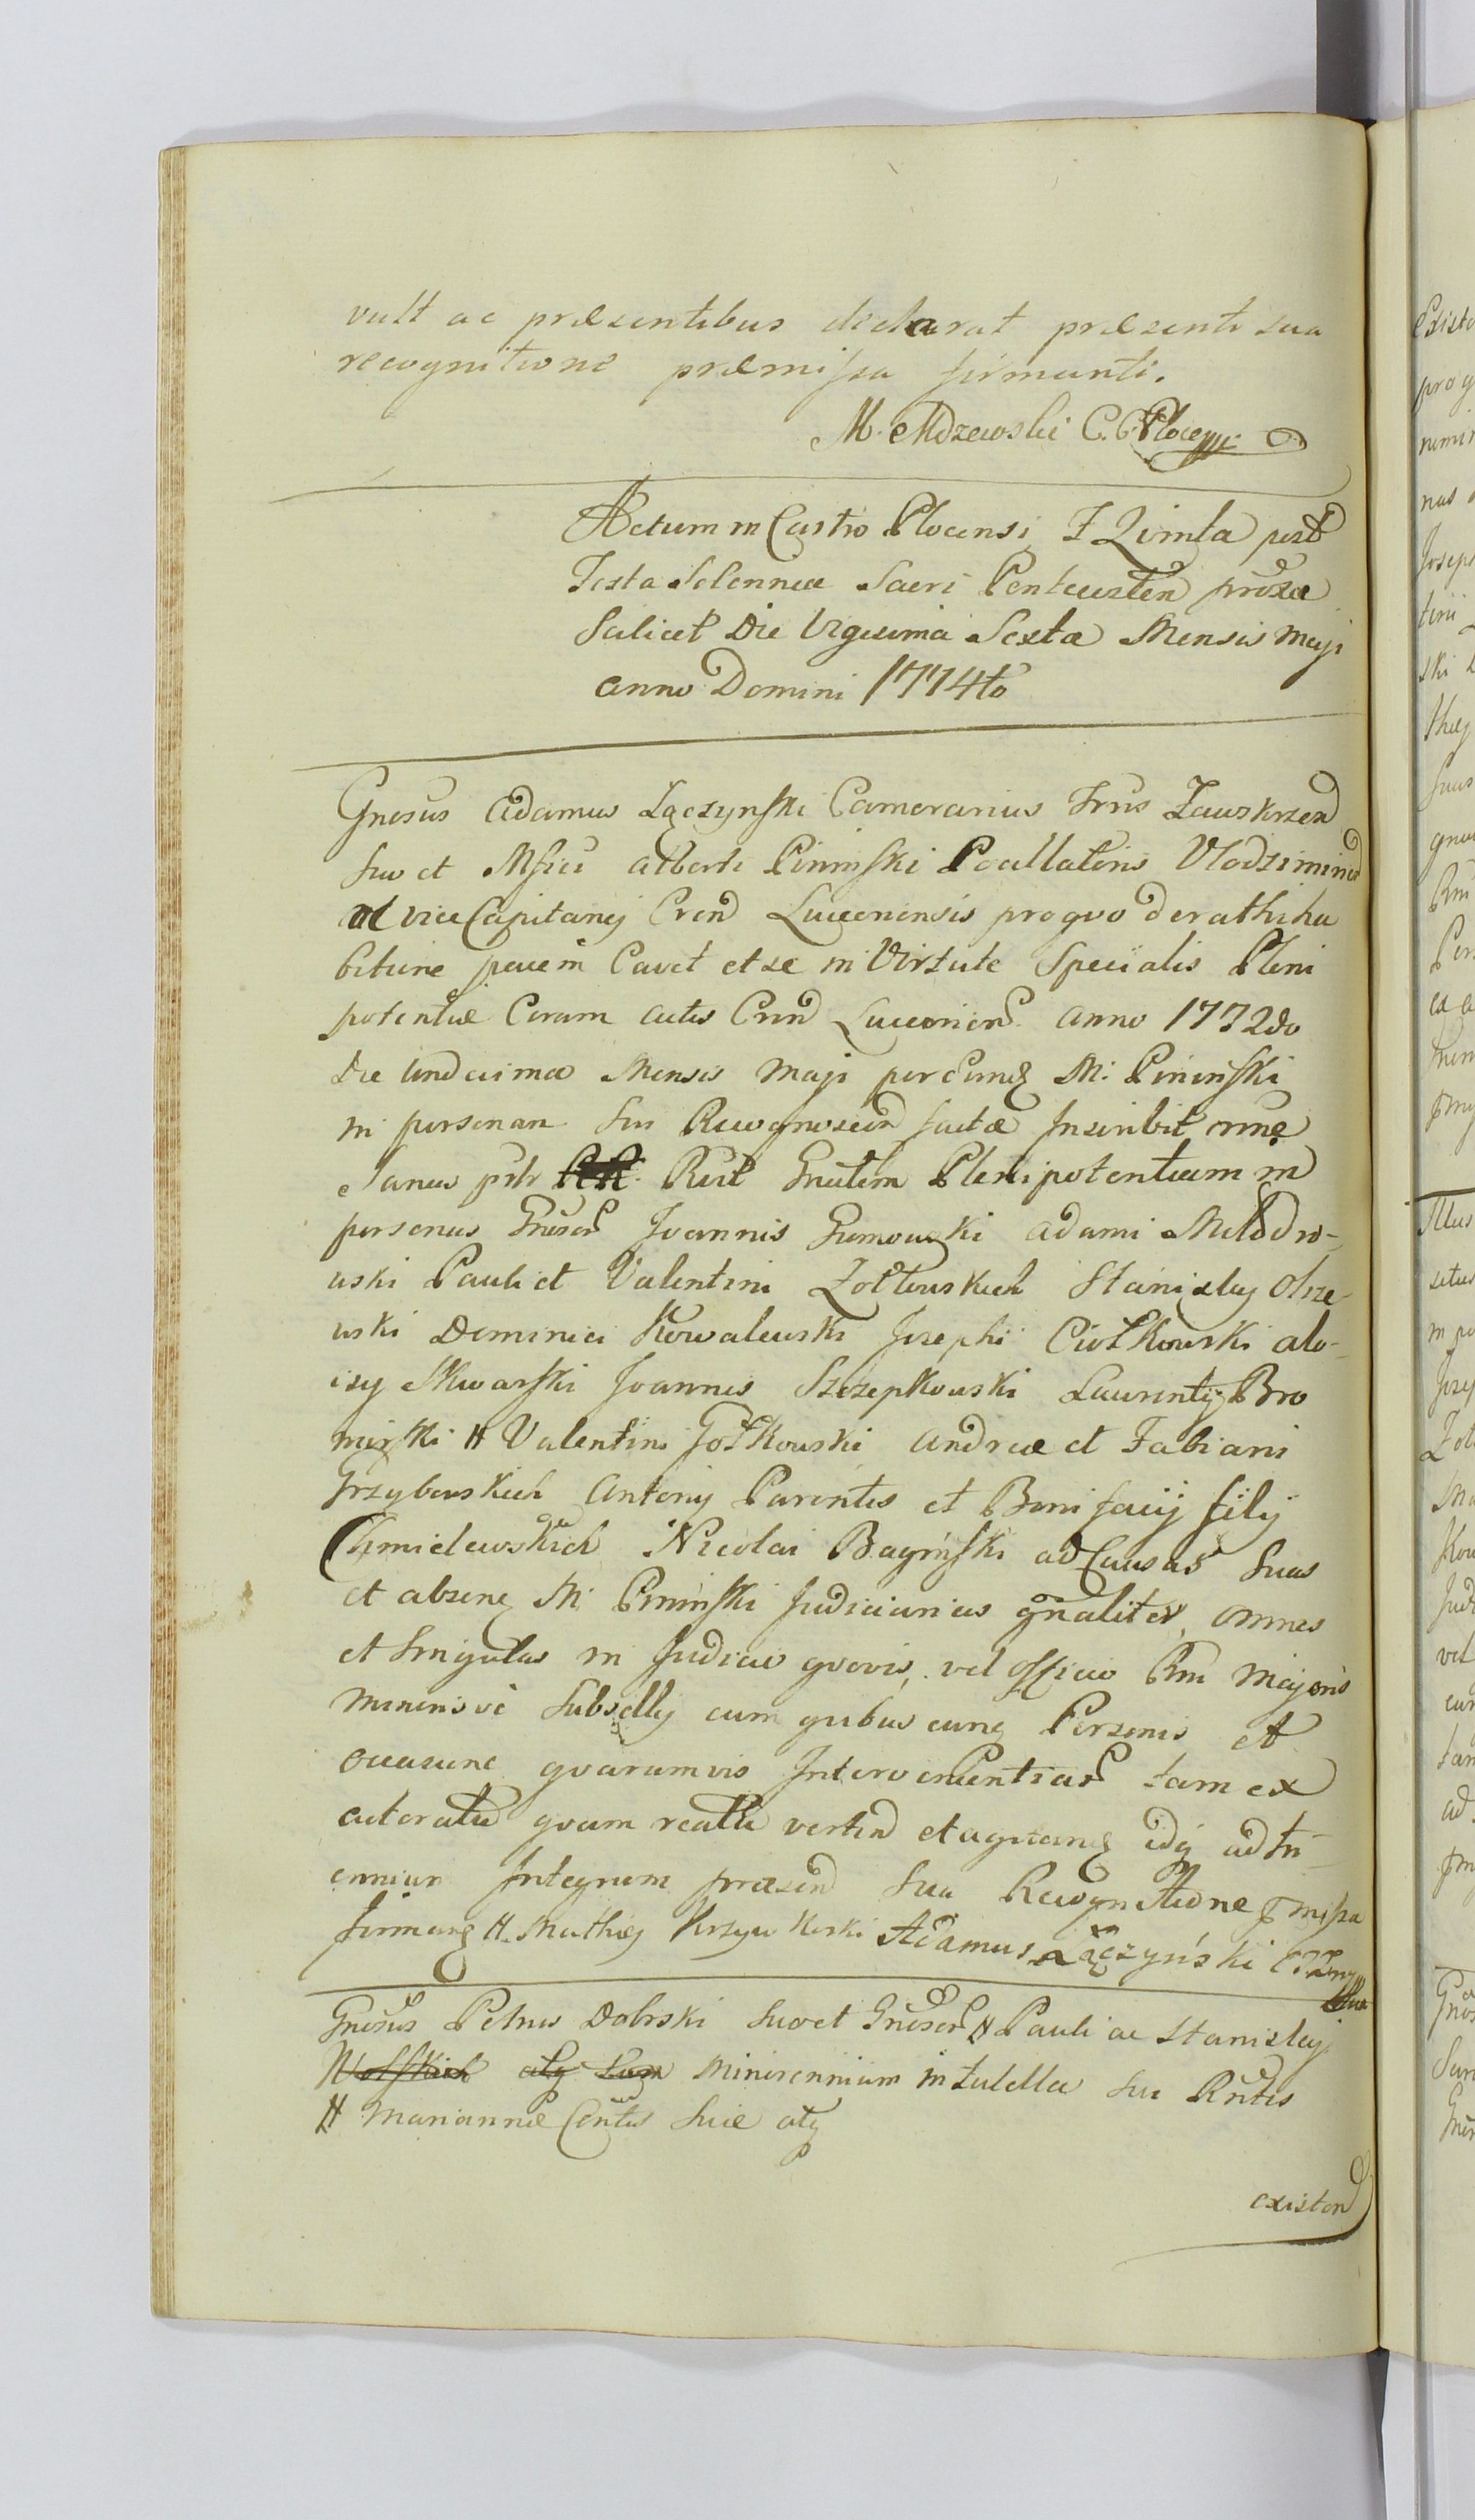 vult ac præsentibus declarat præsenti sua
recognitione præmissa firmanti.
M. Mdzewski C. C. Plocen
Actum in Castro Plocensi F Qvinta post
Festa Solennia Sacri Pentecosten proxa
Scilicet Die Vigesima Sexta Mensis Maji
anno Domini 1774to
Gnosus Adamus Łączyński Camerarius Trrıs Zawskrzen
suo et Mfici Alberti Pininski Pocillatoris Vlodzimirien
vice Capitanej Cren Luceoriensis pro qvo de rathiha
bitione pacem Cavet et se in Virtute Specialis Pleni
potentiæ Coram actis Cren Luceorien anno 1772do
Die Undecima Mensis Maji per eund M. Pininski
in personam sui Recognoscen factæ Inscribit omne
Sanus pstr Rest Gnalem Plenipotentiam in
personas Gneser Joannis Gumowski Adami Młodro-
wski Pauli et Valentini Zołtowskich Stanislaj Olsze
wski Dominici Kowalewski Josephi Ciołkowski Alo-
isy Skwarski Joannis Szczepkowski Laurentij Bro
mirski H Valentini Gołkowski Andreæ et Fabiani
Grzybowskich Antonij Parentis et Bonifacij filij
Chmielewskich Nicolai Baginski ad Causas Suas
et absene M. Pininski Judiciarias gnaliter omnes
et Singulas in Judicio qvovis, vel officio Rni Majoris
Minorisve Subsellij cum qvibus cunq Personis et
occasione qvarumvis Intervenientiar tam ex
actoratu qvam reatu verten et agitan idq ad tri-
ennium Integrum præsen Sua Recognitione pmissa
firman H. Mathiej Krzywkoski Adamus Łączyński
Gnosus Petrus Dobrski Suo et Gneser H Pauli ac Stanislaj
minorennium in tutella sui Rntis
H Mariannæ Contis Suæ atq
existen